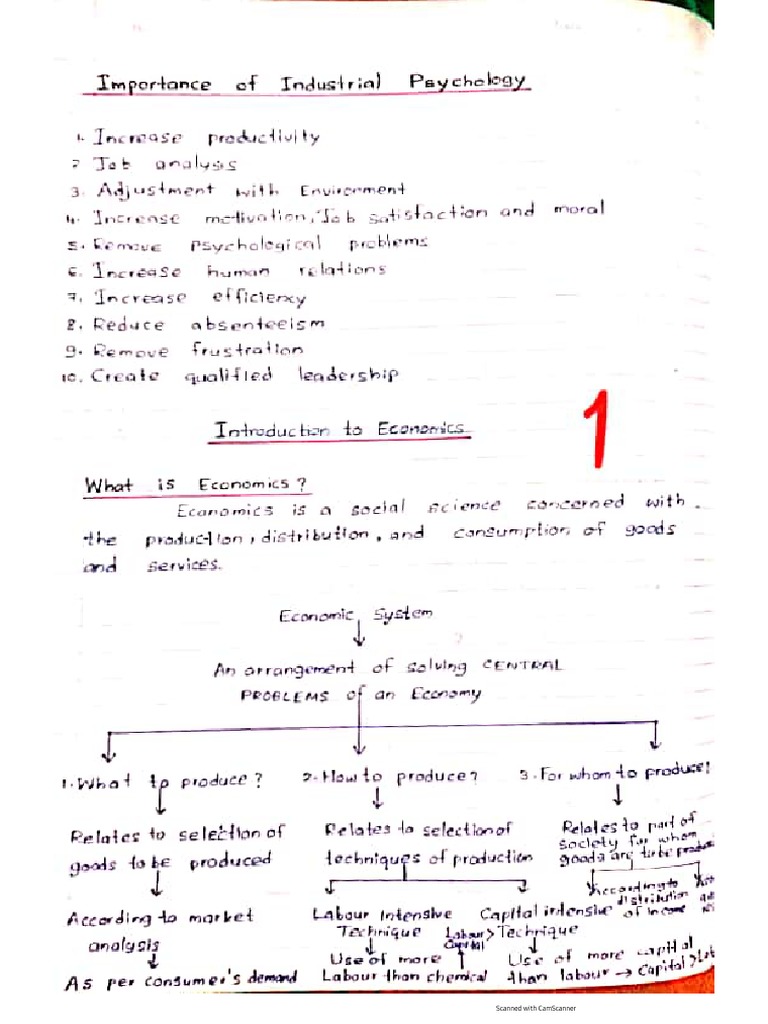 Importance of Industrial Psychology
1. Increase productivity
2 Job analysis
3. Adjustment with Environment
4. Increase motivation, Job satisfaction and moral
5. Remove psychological problems
6. Increase human relations
7. Increase efficiency
8. Reduce absenteeism
9. Remove frustration
10. Create qualified leadership
Introduction to Economics
1
What is Economics?
Economics is a social science concerned with
the production, distribution, and consumption of goods
and services.
Economic System
An arrangement of solving CENTRAL
PROBLEMS of an Economy
1. What to produce? 2. How to produce? 3. For whom to produce?
Relates to selection of
goods to be produced
Relates to selection of
techniques of production
Relates to part of
society for whom
goods are to be
According to
distribution
of income
According to market
analysis
As per consumer's demand
Labour Intensive
Technique
Use of more
Labour than chemical
Labour>
Capital
Capital intensive
Technique
Use of more capital
than labour → Capital >
Scanned with CamScanner